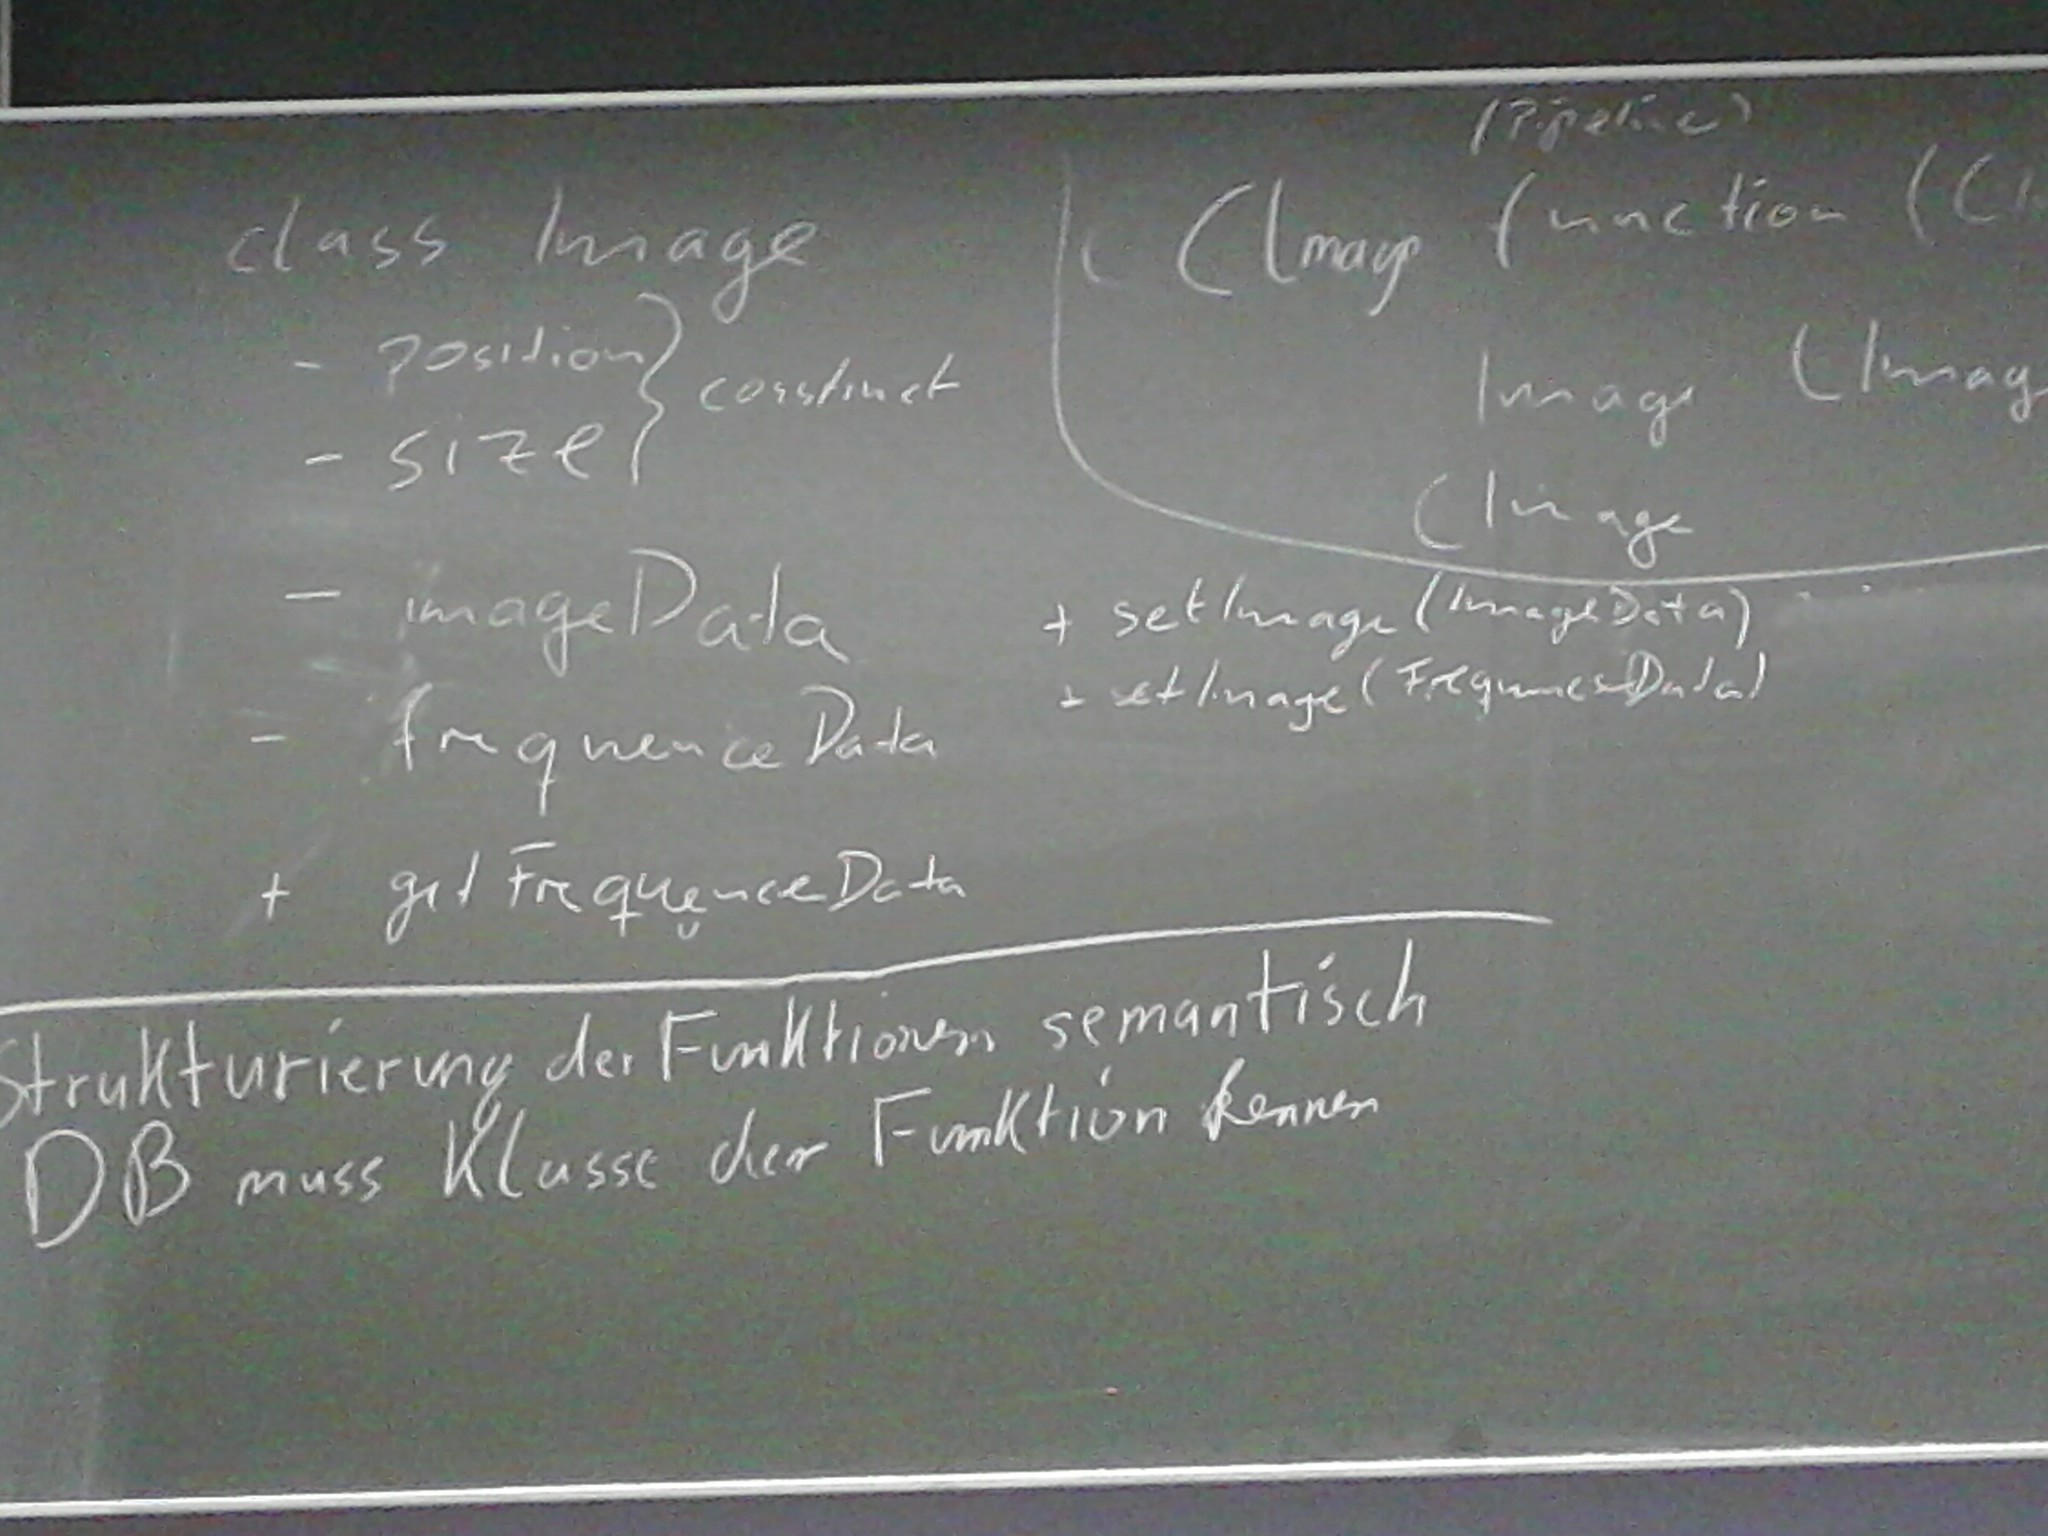 class Image
- position
- size
construct
- imageData
- frequenceData
+ getFrequenceData
(Pipeline)
CImage function (CI
Image CImag
CImage
+ setImage(ImageData)
+ setImage(FrequenceData)
Strukturierung der Funktionen semantisch
DB muss Klasse der Funktion kennen